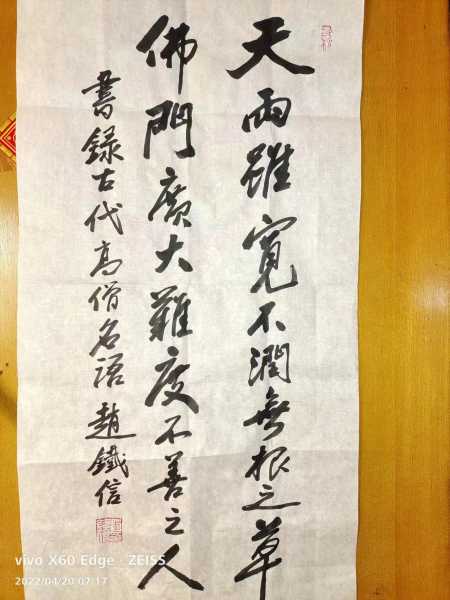 天雨雖寬不潤無根之草
佛門廣大難度不善之人
書録古代高僧名語 趙鐵信
vivo X60 Edge · ZEISS
2022/04/20 07:17